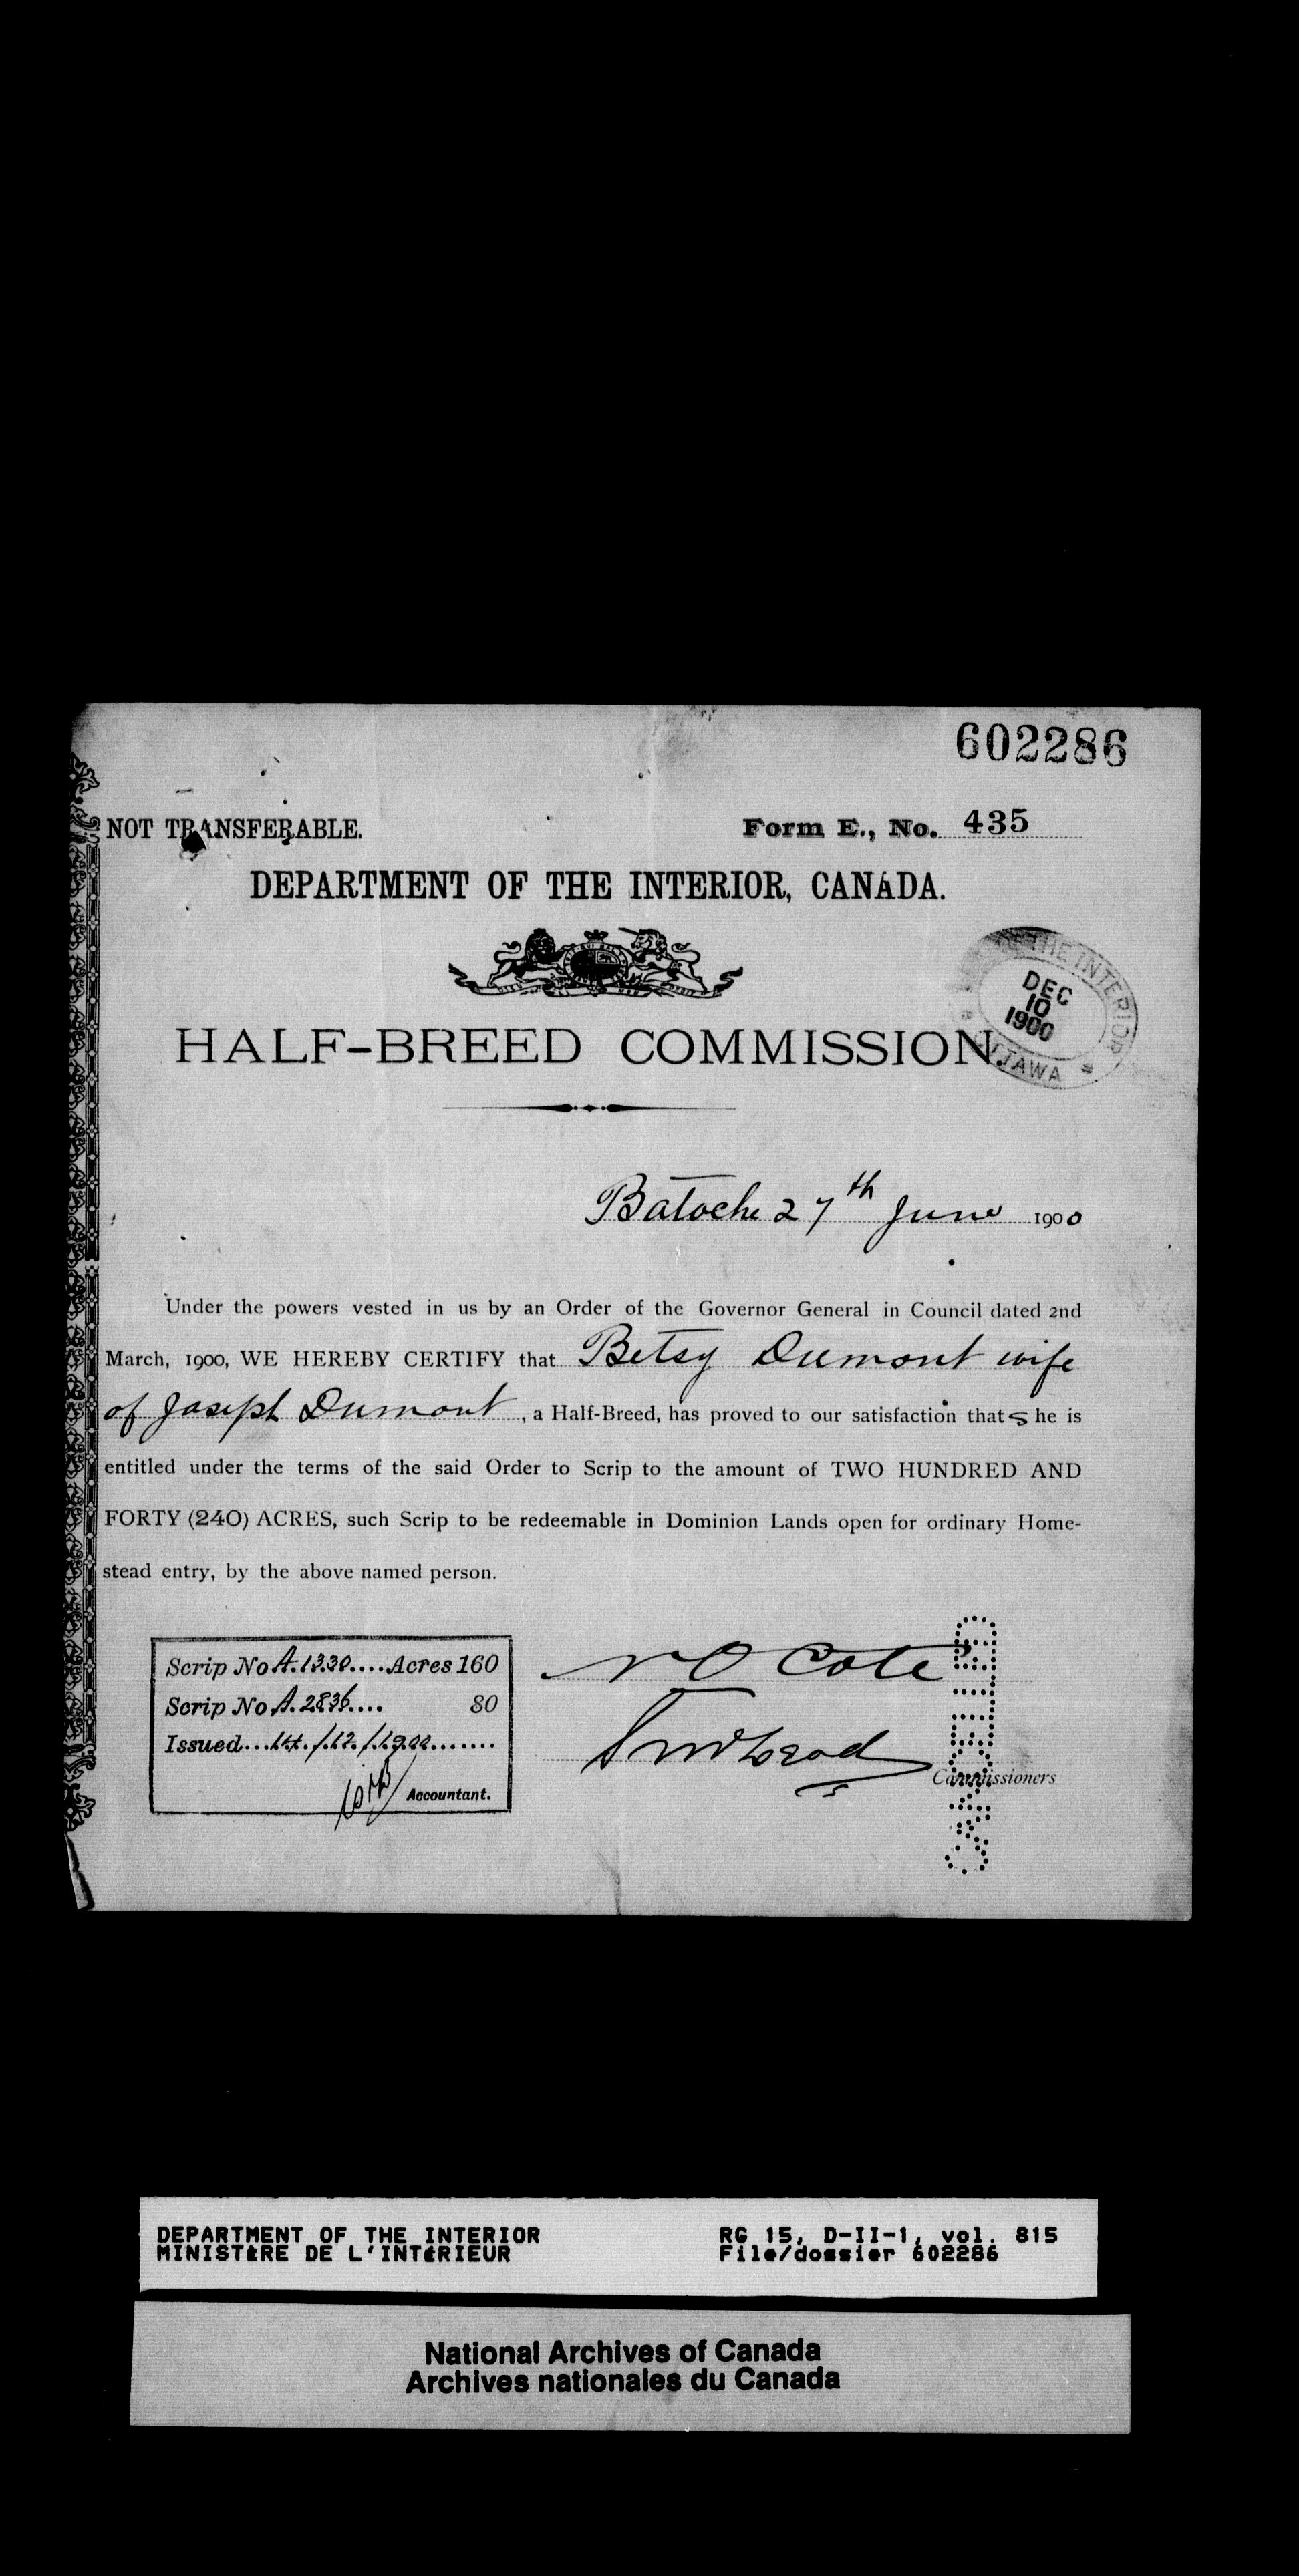 602286
NOT TRANSFERABLE.
Form E., No. 435
DEPARTMENT OF THE INTERIOR, CANADA.
THE INTERIOR
DEC
10
1900
OTTAWA
HALF-BREED COMMISSION
Batoche 27th June 1900
Under the powers vested in us by an Order of the Governor General in Council dated 2nd
March, 1900, WE HEREBY CERTIFY that Betsy Dumont wife
of Joseph Dumont, a Half-Breed, has proved to our satisfaction that she is
entitled under the terms of the said Order to Scrip to the amount of TWO HUNDRED AND
FORTY (240) ACRES, such Scrip to be redeemable in Dominion Lands open for ordinary Home-
stead entry, by the above named person.
Scrip No A.1330....Acres 160
Scrip No A.2836.... 80
Issued...14./.12./.1900.......
Accountant.
N O Coté
Commissioners
DEPARTMENT OF THE INTERIOR
MINISTÈRE DE L'INTÉRIEUR
RG 15, D-II-1, vol. 815
File/dossier 602286
National Archives of Canada
Archives nationales du Canada